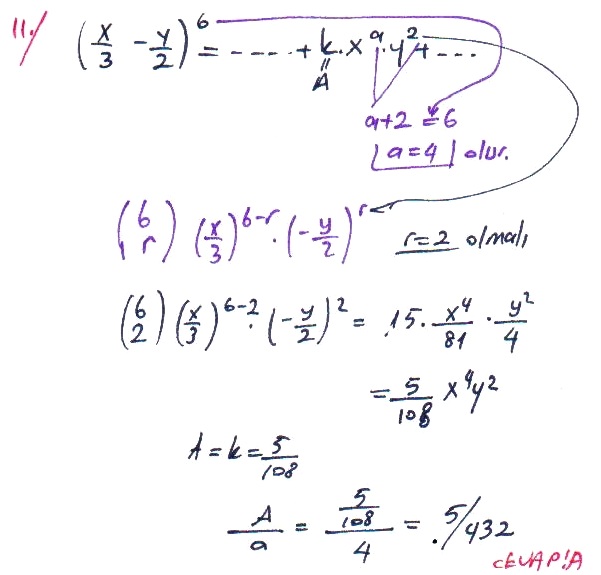 11./ (x/3 - y/2)^6 = ---- + k.x^a.y^2 + ...
=
A
a+2 = 6
a=4 olur.
(6 r) (x/3)^(6-r) . (-y/2)^r r=2 olmalı
(6 2) (x/3)^(6-2) . (-y/2)^2 = 15 . x^4/81 . y^2/4
= 5/108 x^4y^2
A = k = 5/108
A/a = (5/108)/4 = 5/432
CEVAP:A